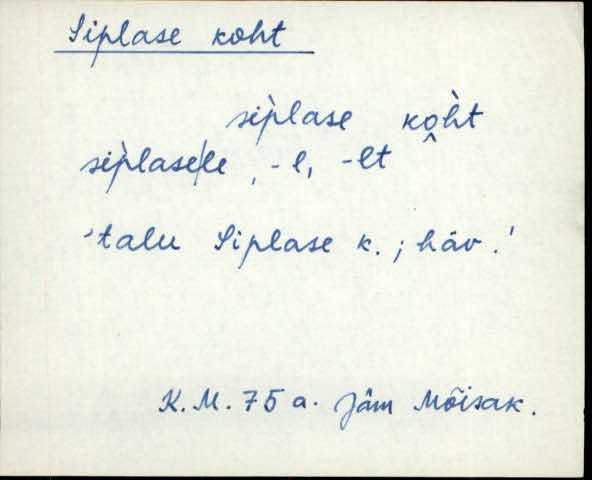 Siplase koht
sìplase ko̭h̀t
sìplase|le, -l, -lt
'talu Siplase k.; häv.'
K.M. 75 a. Jäm Mõisak.